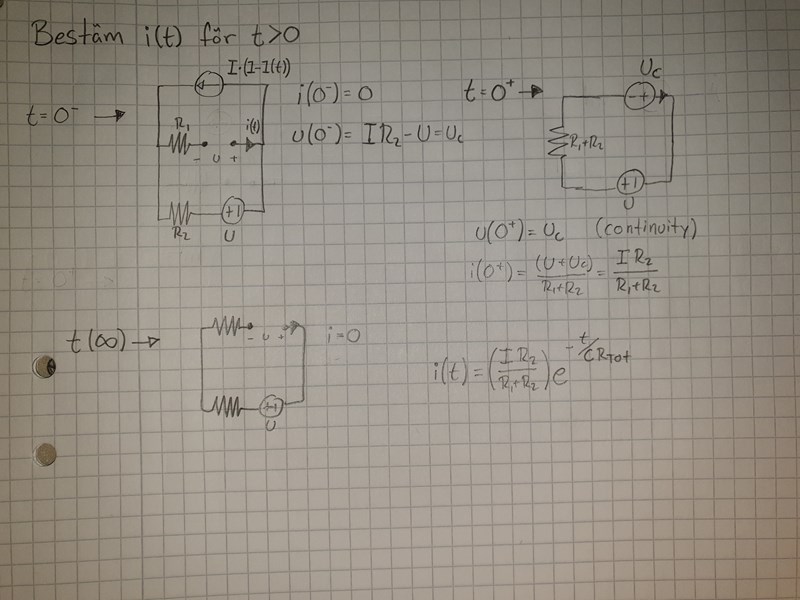 Bestäm i(t) för t>0
I·(1-1(t))
t=0⁻ →
R₁
i(t)
- u +
R₂
U
i(0⁻)=0
u(0⁻)= I R₂-U=Uc
t=0⁺ →
Uc
-+
R₁+R₂
U
u(0⁺)=Uc (continuity)
i(0⁺)= (U+Uc)/(R₁+R₂) = I R₂/(R₁+R₂)
t(∞) →
- u +
i=0
U
i(t)=(I R₂/(R₁+R₂))e^(-t/CRTot)